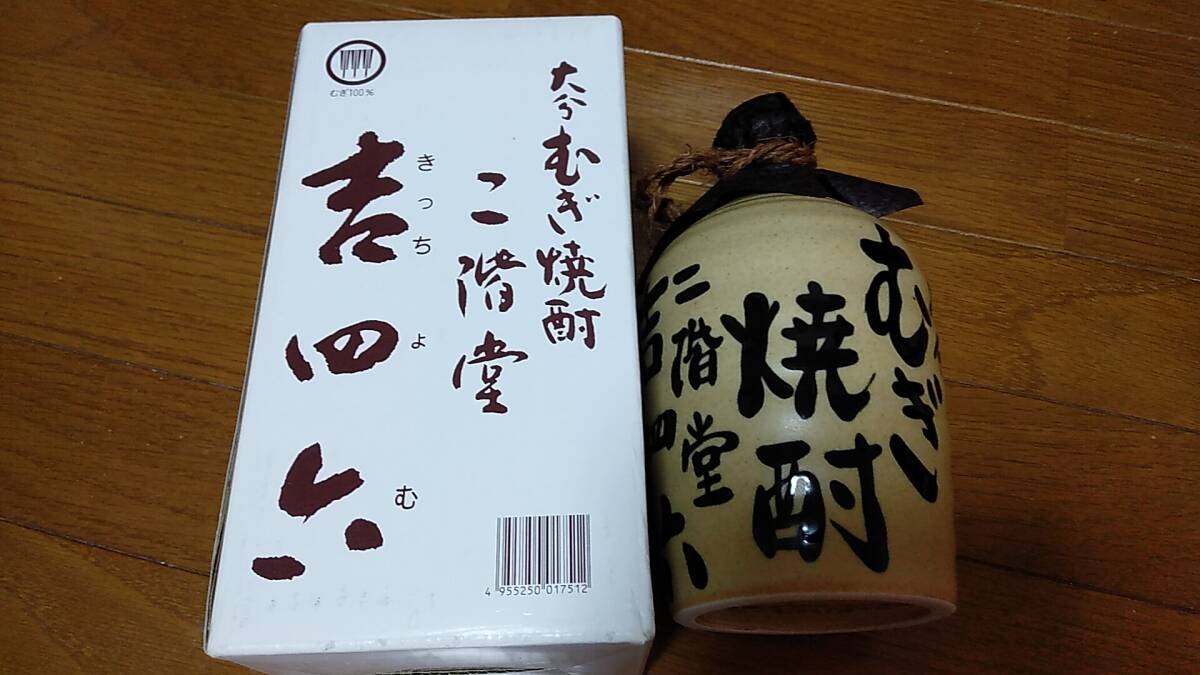 むぎ100%
大分むぎ焼酎
二階堂
吉四六
きっちょむ
4 955250 017512
むぎ
焼酎
二階堂
吉四六